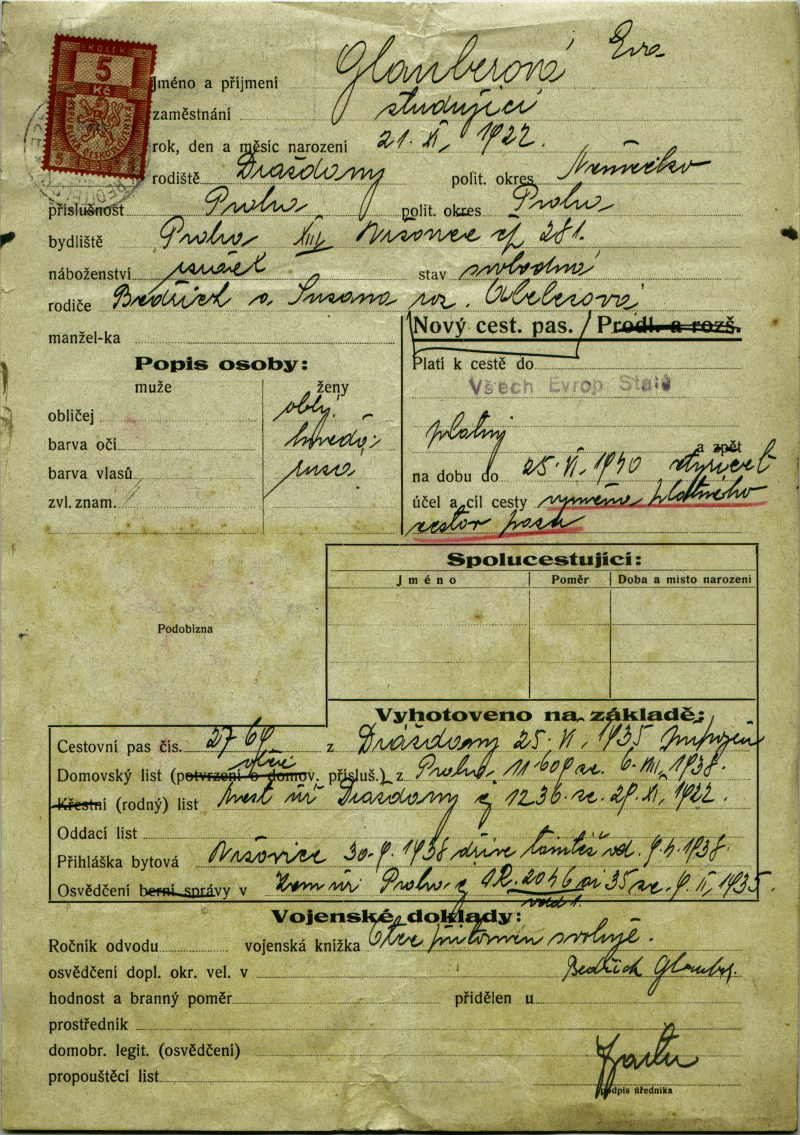 KOLEK
5
Kč
REPUBLIKA ČESKOSLOVENSKÁ
Jméno a příjmení Glauberová Eva
zaměstnání studující
rok, den a měsíc narození 21. XI. 1922.
rodiště Drážďany polit. okres Německo
příslušnost Praha polit. okres Praha
bydliště Praha XIII Vršovice čp 281.
náboženství israel stav svobodná
rodiče Bedřich a Susana roz. Abelesová
manžel-ka
Nový cest. pas. / Prodl. a rozš.
Popis osoby:
muže ženy
obličej oblý
barva očí hnědé
barva vlasů rusá
zvl. znam.
Platí k cestě do
Všech Evrop Států
platný
a zpět
na dobu do 25. VI. 1940
účel a cíl cesty výměna platného
cestov pasu
Spolucestující:
Jméno Poměr Doba a místo narození
Podobizna
Vyhotoveno na základě:
Cestovní pas čís. 2769 z Drážďany 25. VI. 1935
Domovský list (potvrzení o domov. přísluš.) z Praha, 11609 ze 6. VIII. 1938.
Křestní (rodný) list Drážďany čj 1236. ze 29. XI. 1922.
Oddací list
Přihláška bytová Vršovice 30. 9. 1938 dříve tamtéž od
Osvědčení berní správy v Praha 2046 ai 35 ze 9. II. 1935.
Vojenské doklady:
Ročník odvodu vojenská knížka Otec přítomen svoluje.
osvědčení dopl. okr. vel. v Bedřich Glauber
hodnost a branný poměr přidělen u
prostředník
domobr. legit. (osvědčení)
propouštěcí list
podpis úředníka